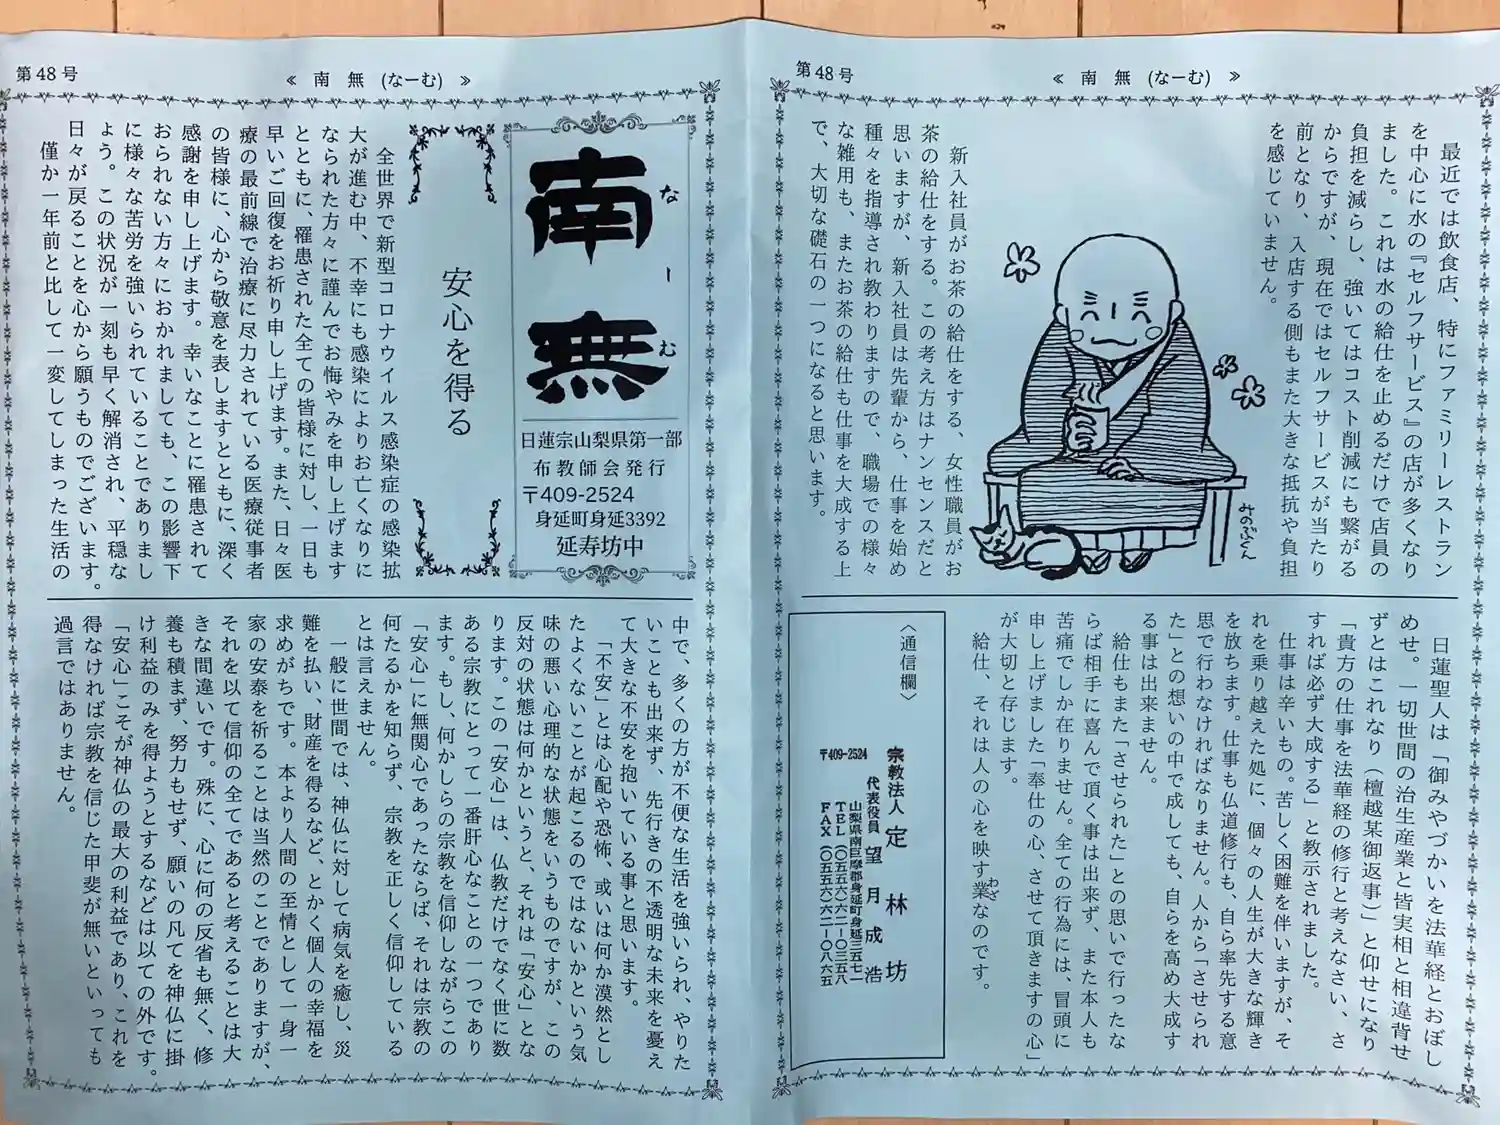 第48号
≪ 南 無 (なーむ) ≫
最近では飲食店、特にファミリーレストラン
を中心に水の『セルフサービス』の店が多くなり
ました。これは水の給仕を止めるだけで店員の
負担を減らし、強いてはコスト削減にも繋がる
からですが、現在ではセルフサービスが当たり
前となり、入店する側もまた大きな抵抗や負担
を感じていません。
みのぶくん
新入社員がお茶の給仕をする、女性職員がお
茶の給仕をする。この考え方はナンセンスだと
思いますが、新入社員は先輩から、仕事を始め
種々を指導され教わりますので、職場での様々
な雑用も、またお茶の給仕も仕事を大成する上
で、大切な礎石の一つになると思います。
日蓮聖人は「御みやづかいを法華経とおぼし
めせ。一切世間の治生産業と皆実相と相違背せ
ずとはこれなり(檀越某御返事)」と仰せになり
「貴方の仕事を法華経の修行と考えなさい、さ
すれば必ず大成する」と教示されました。
仕事は辛いもの。苦しく困難を伴いますが、そ
れを乗り越えた処に、個々の人生が大きな輝き
を放ちます。仕事も仏道修行も、自ら率先する意
思で行わなければなりません。人から「させられ
た」との想いの中で成しても、自らを高め大成す
る事は出来ません。
給仕もまた「させられた」との思いで行ったな
らば相手に喜んで頂く事は出来ず、また本人も
苦痛でしか在りません。全ての行為には、冒頭に
申し上げました「奉仕の心、させて頂きますの心」
が大切と存じます。
給仕、それは人の心を映す業なのです。
わざ
〈通信欄〉
宗教法人 定林坊
代表役員 望月成浩
〒409-2524
山梨県南巨摩郡身延町身延三五七一
TEL(〇五五六)六二ー〇三五八
FAX(〇五五六)六二ー〇八六五
第48号
≪ 南 無 (なーむ) ≫
南無
なーむ
日蓮宗山梨県第一部
布教師会発行
〒409-2524
身延町身延3392
延寿坊中
安心を得る
全世界で新型コロナウイルス感染症の感染拡
大が進む中、不幸にも感染によりお亡くなりに
なられた方々に謹んでお悔やみを申し上げます
とともに、罹患された全ての皆様に対し、一日も
早いご回復をお祈り申し上げます。また、日々医
療の最前線で治療に尽力されている医療従事者
の皆様に、心から敬意を表しますとともに、深く
感謝を申し上げます。幸いなことに罹患されて
おられない方々におかれましても、この影響下
に様々な苦労を強いられていることでありまし
ょう。この状況が一刻も早く解消され、平穏な
日々が戻ることを心から願うものでございます。
僅か一年前と比して一変してしまった生活の
中で、多くの方が不便な生活を強いられ、やりた
いことも出来ず、先行きの不透明な未来を憂え
て大きな不安を抱いている事と思います。
「不安」とは心配や恐怖、或いは何か漠然とし
たよくないことが起こるのではないかという気
味の悪い心理的な状態をいうものですが、この
反対の状態は何かというと、それは「安心」とな
ります。この「安心」は、仏教だけでなく世に数
ある宗教にとって一番肝心なことの一つであり
ます。もし、何かしらの宗教を信仰しながらこの
「安心」に無関心であったならば、それは宗教の
何たるかを知らず、宗教を正しく信仰している
とは言えません。
一般に世間では、神仏に対して病気を癒し、災
難を払い、財産を得るなど、とかく個人の幸福を
求めがちです。本より人間の至情として一身一
家の安泰を祈ることは当然のことでありますが、
それを以て信仰の全てであると考えることは大
きな間違いです。殊に、心に何の反省も無く、修
養も積まず、努力もせず、願いの凡てを神仏に掛
け利益のみを得ようとするなどは以ての外です。
「安心」こそが神仏の最大の利益であり、これを
得なければ宗教を信じた甲斐が無いといっても
過言ではありません。